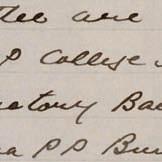 tee are
P College
ratory Bac
a P P Bur